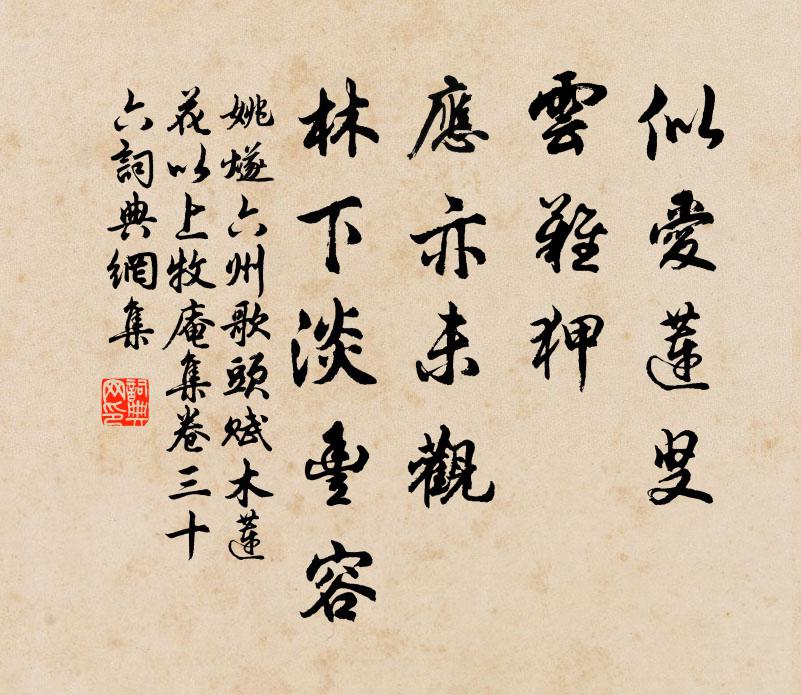 似愛蓮叟
雲難狎
應亦未觀
林下淡豊容
姚燧六州歌頭賦木蓮
花以上牧庵集卷三十
六詞典網集
詞典網印